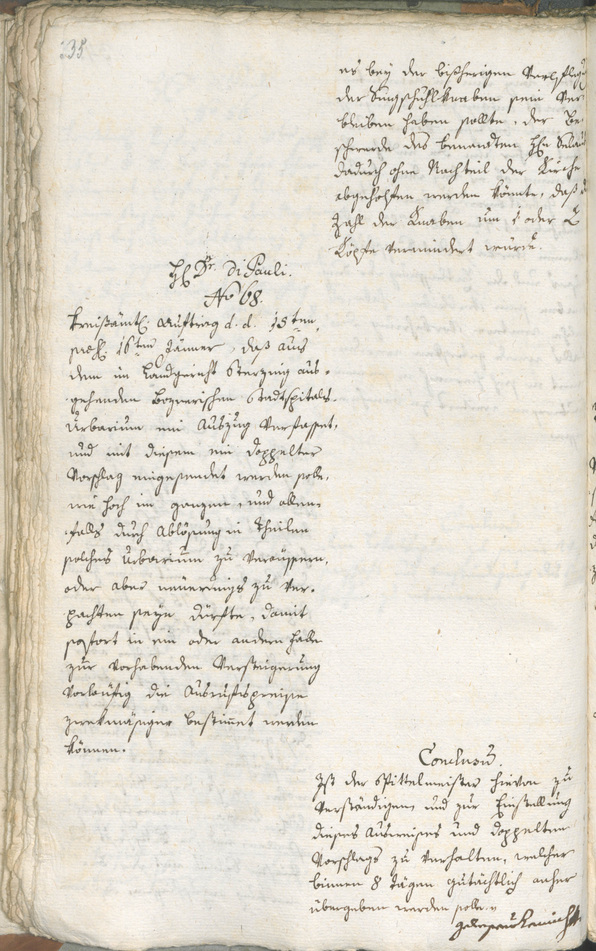 235
es bey der bißherigen Verpfleg
der Singschuhlknaben sein Ver
bleiben haben sollte, der Be
schwerde des benandten
dadurch ohne Nachteil der Kirche
abgeholfen werden könnte, daß
Zahl der Knaben um 1 oder 2
Köpfe vermindert würde.
H. Dr. Di Pauli.
No 68.
Kreißämtl. Auftrag d. d. 15ten,
16ten Jänner, daß aus
dem im Landgericht Sterzing aus-
gehenden Boznerischen Stadtspitals-
Urbarium ein Auszug verfasset,
und mit diesem ein doppelter
Vorschlag eingesendet werden solle,
wie hoch im ganzen, und allen-
falls durch Ablösung in Theilen
solches Urbarium zu veräussern,
oder aber neuerings zu ver-
pachten seyn dürfte, damit
sofort in ein oder andern Falle
zur vorhabenden Versteigerung
vorläufig die Ausrufspreise
zwekmäsiger bestimmt werden
können.
Conclusum.
Ist der Spittelmeister hievon zu
verständigen, und zur Einstellung
dieses Ausweises und doppelten
Vorschlags zu verhalten, welcher
binnen 8 Tägen gutächtlich anher
übergeben werden solle.